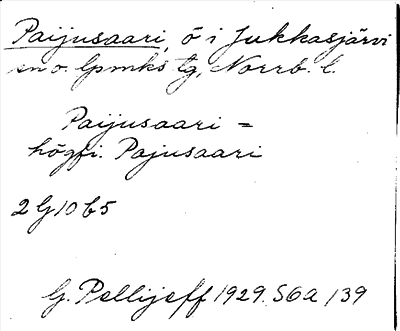 Paijusaari, ö i Jukkasjärvi
sn o. lpmks tg, Norrb. l.
Paijusaari =
högfi. Pajusaari
2 G 10 b 5
G. Pellijeff 1929. S6a /39